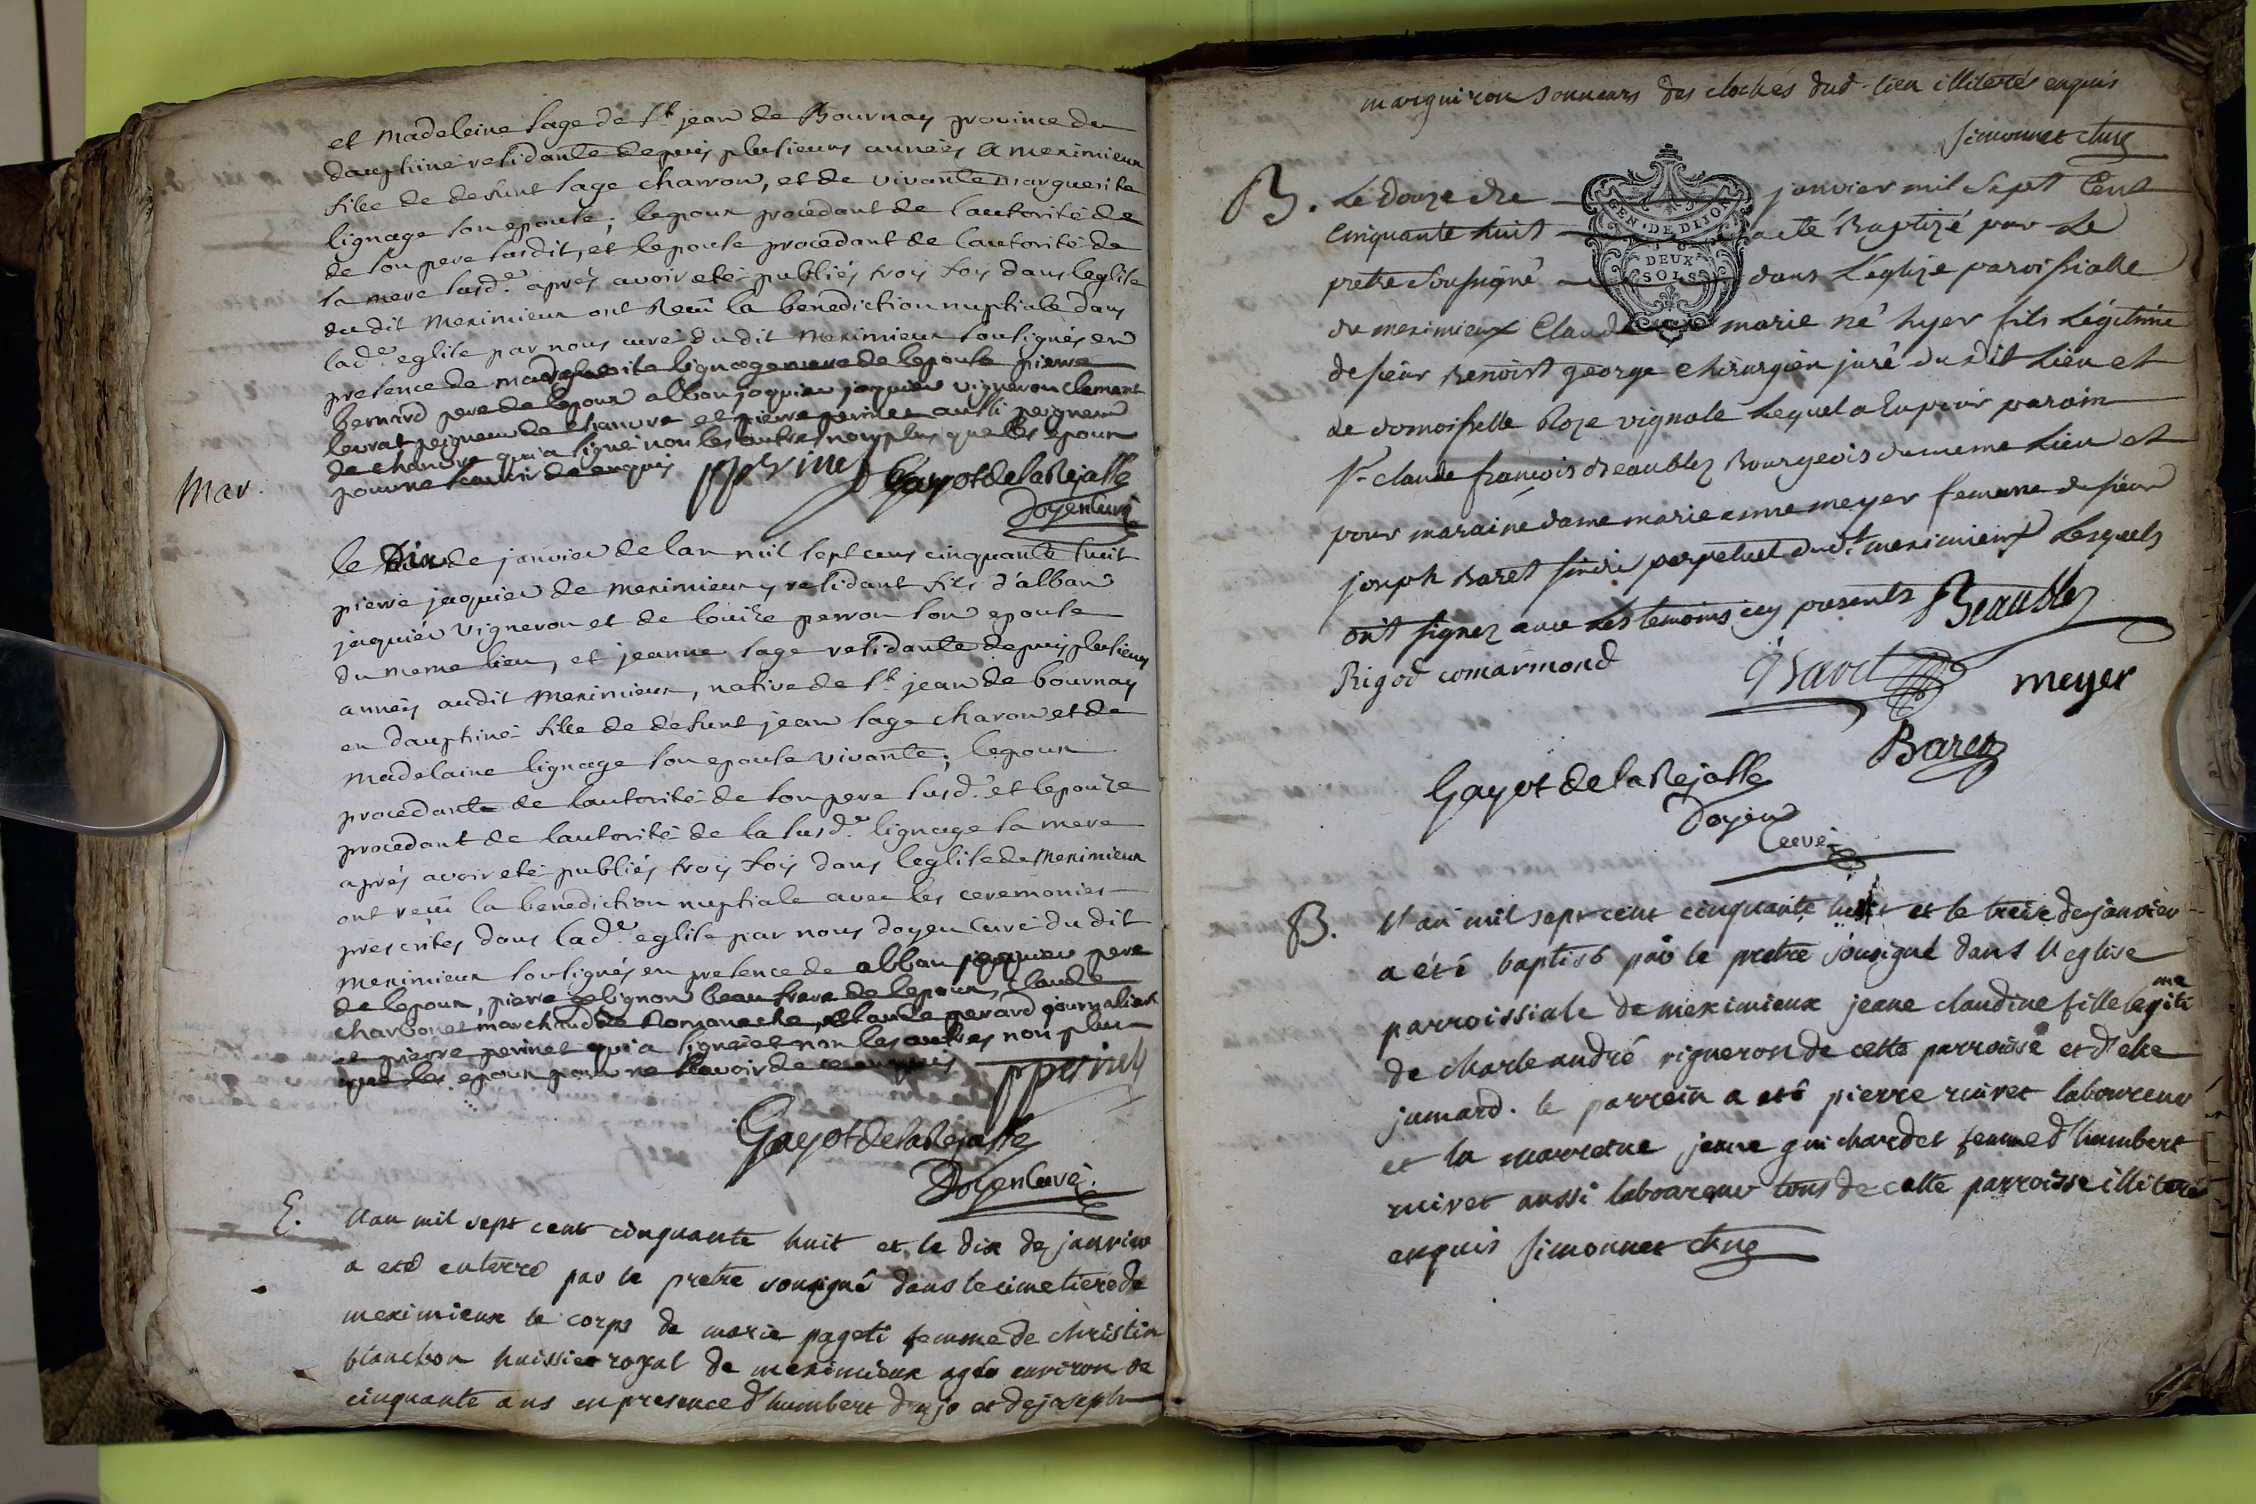 et Madeleine Sage de St jean de Bournay province du
dauphiné residante depuis plusieurs années a meximieux
fille de defunt Sage charron, et de vivante marguerite
lignage son epouse; lepoux procedant de lautorité de
de son pere susdit, et lepouse procedant de lautorité de
sa mere susde. aprés avoir eté publiés trois fois dans leglise
du dit meximieux ont Receu la benediction nuptiale dans
lade eglise par nous curé du dit meximieux soussignés en
presence de marguerite lignage mere de lepouse pierre
bernard pere de lepoux alban joquieu vigneron clement
levrat peigneur de chanvre et pierre perinet aussi peigneur
de chanvre qui a signé non les autres non plus que les epoux
pour ne scavoir de enquis pperinet Gayot de la Rejasse
Doyen Curé
Mar.
le Dix de janvier de lan mil sept cens cinquante huit
pierre jaquieu de meximieux y residant fils d'alban
jaquieu vigneron et de louize perron son epouse
du meme lieu, et jeanne sage residante depuis plusieurs
années audit meximieux, native de St jean de bournay
en dauphiné fille de defunt jean sage charon et de
madelaine lignage son epouse vivante; lepoux
procedant de lautorité de son pere susd. et lepouze
procedant de lautorité de la susde. lignage sa mere
aprés avoir eté publiés trois fois dans leglise de meximieux
ont receu la benediction nuptiale avec les ceremonies
prescrites dans lade. eglise par nous doyen curé du dit
meximieux soussignés en presence de alban jaquieu pere
de lepoux, pierre gelignon beau frere de lepoux, claude
charbonet marchand de Romaneche, claude perard journalier
et pierre perinet qui a signé et non les autres non plus
que les epoux pour ne scavoir de ce enquis pperinet
Gayot de la Rejasse
Doyen Curé.
E.
L'an mil sept cent cinquante huit et le dix de janvier
a eté enterré par le pretre sousigné dans le cimetiere de
meximieux le corps de marie pageti femme de christin
blanchon huissier royal de meximieux agée environ de
cinquante ans en presence d'humbert dujo et de joseph
marguiron sonneurs des cloches dud. lieu illiterés enquis
Simonnet
B.
Le douze de janvier mil Sept Cent
GEN. DE DIJON
DEUX
SOLS
Cinquante huit a eté Baptizé par Le
pretre Soussigné dans L'église paroissialle
de meximieux Claude marie né hyer fils Légitime
de sieur Benoist george chirurgien juré dudit Lieu et
de domoiselle Roze vignale Lequel a Eu pour parain
Sr claude françois Beaublez Bourgeois du meme Lieu et
pour maraine dame marie anne meyer femme de sieur
joseph Baret perpetuel dudt. meximieux Lesquels
ont signez avec Les temoins icy presents Beaublez
Rigod comarmond Baret meyer
Baret
Gayot de la Rejasse
Doyen
Curé
B.
L'an mil sept cent cinquante huit et le treize de janvier
a été baptisé par le pretre sousigné dans l'eglise
parroissiale de meximieux jeane claudine fille legitime
de charle andré vigneron de cette parroisse et d'
jumard. le parrein a eté pierre rivet laboureur
et la marrene jeane guichardet femme d'humbert
rivet aussi laboureur tous de cette parroisse illiterés
enquis Simonnet